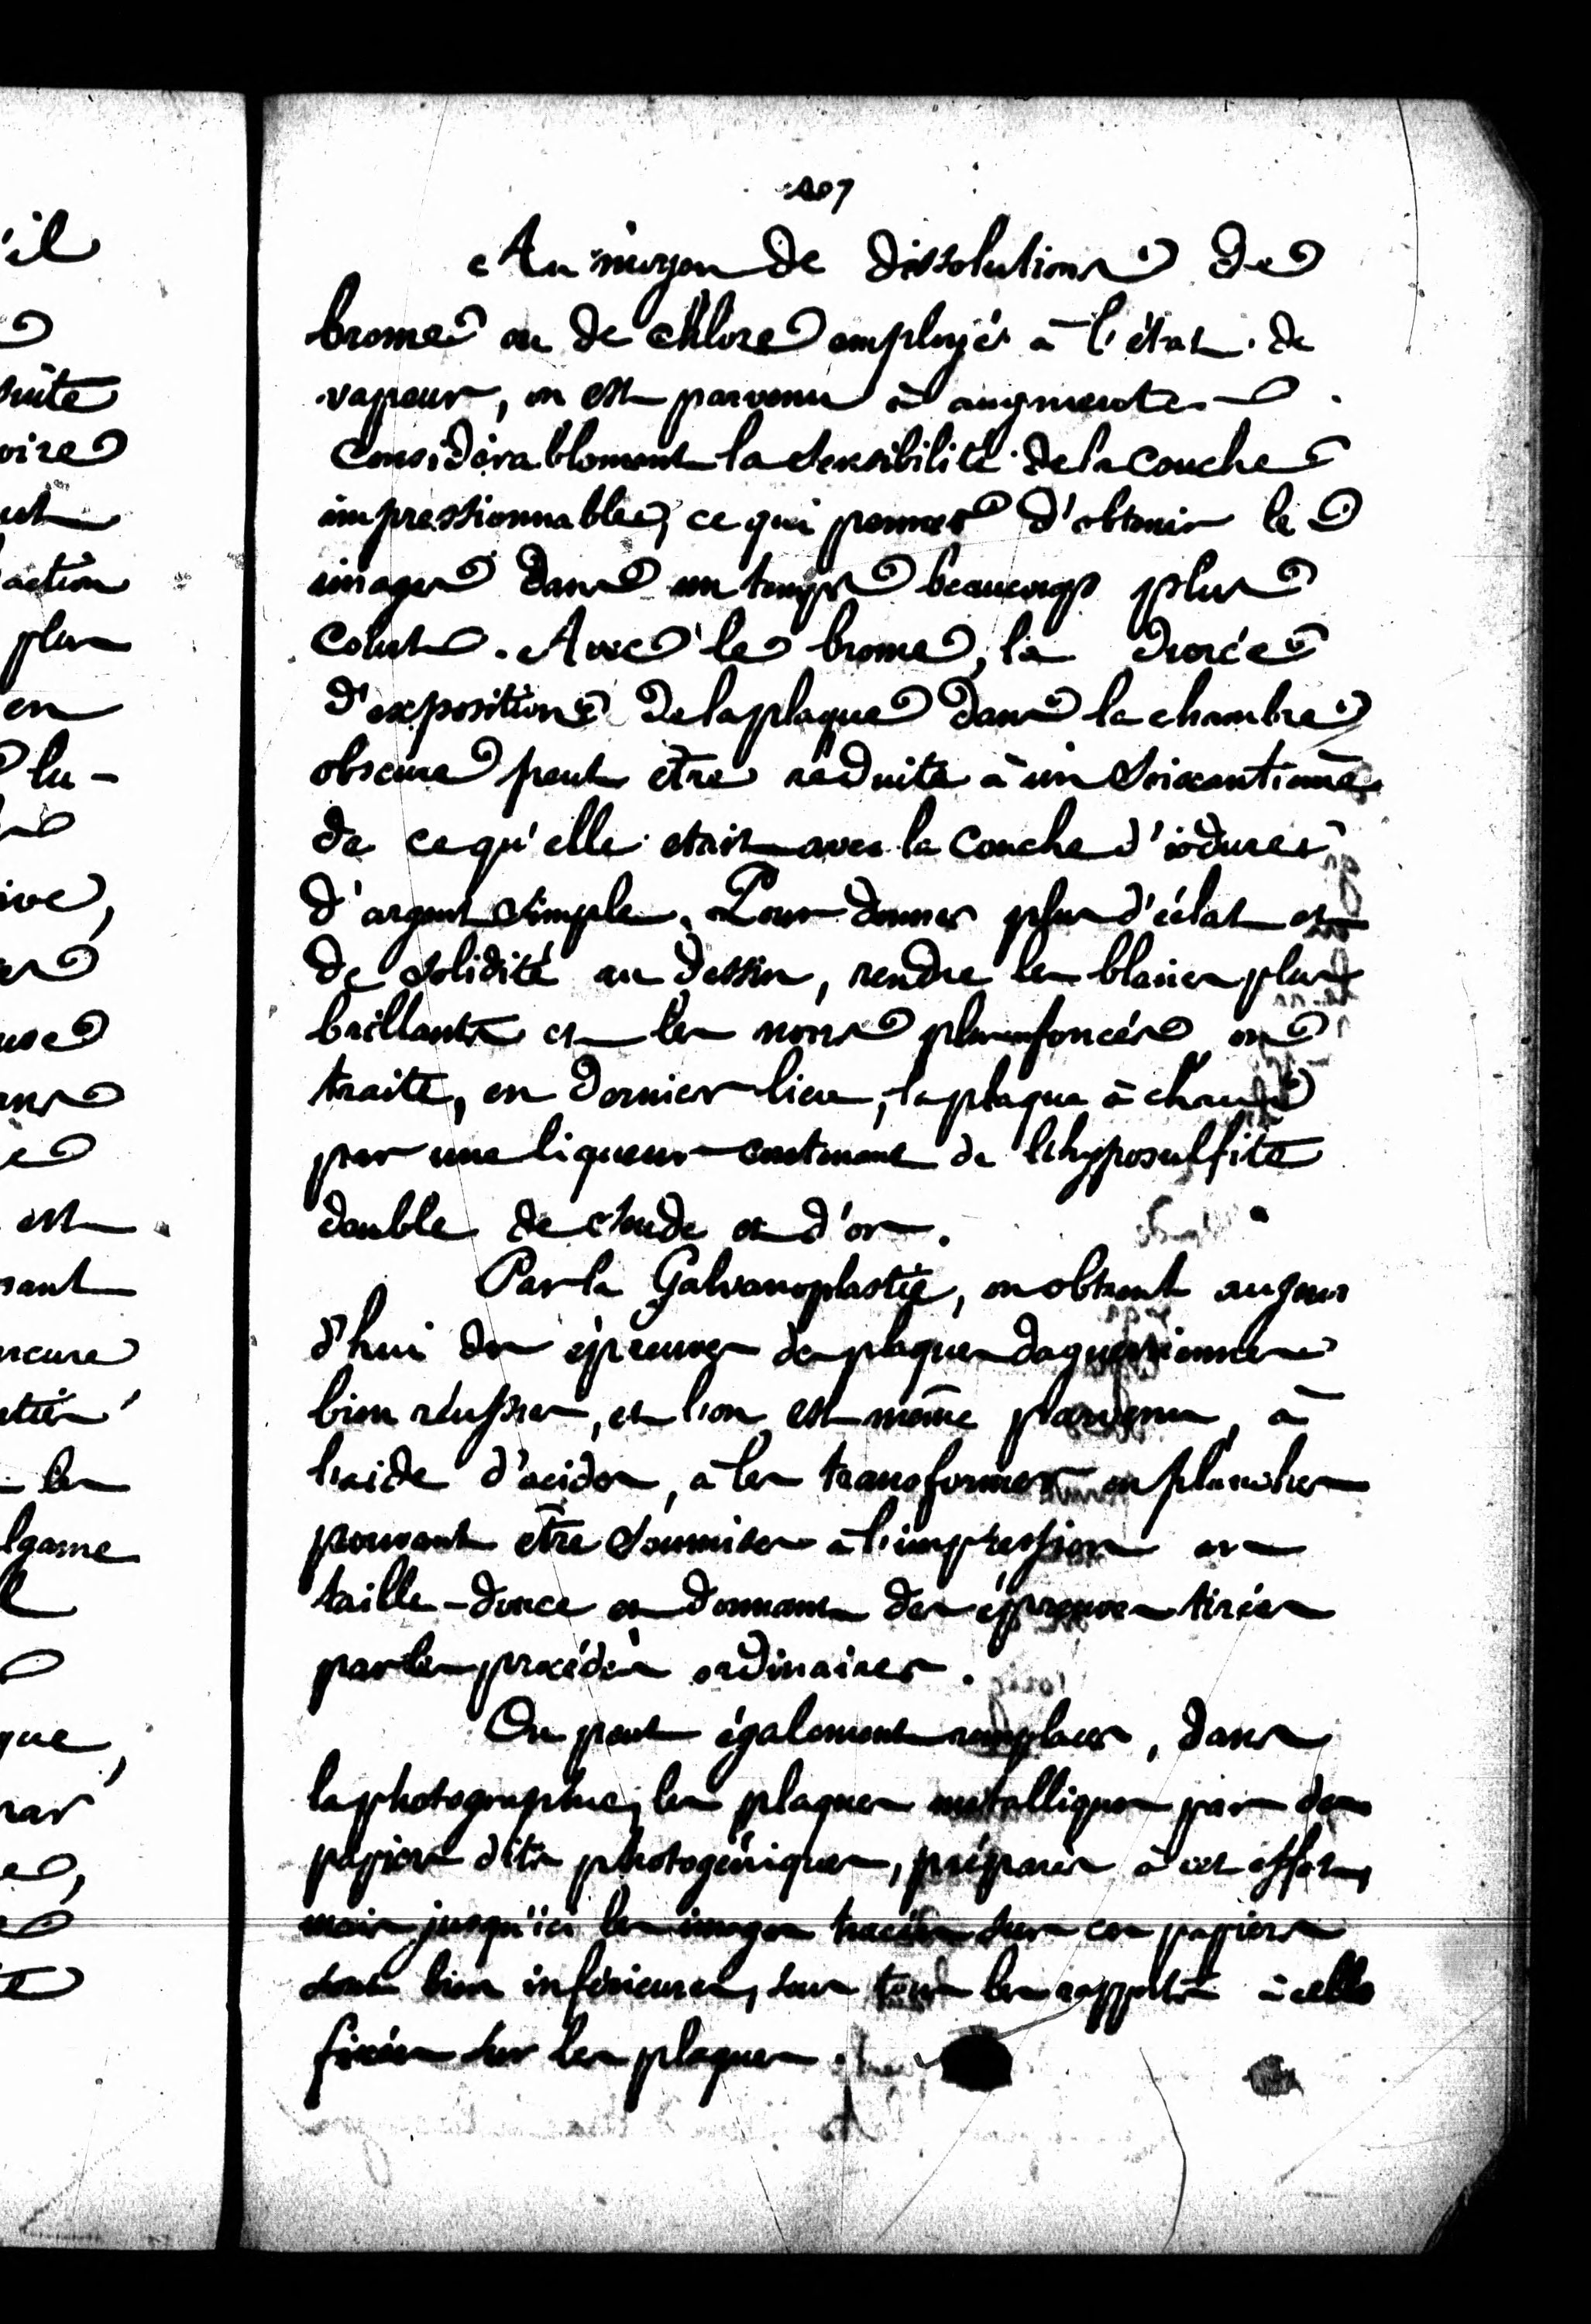 207
Au moyen de dissolutions de
brome ou de chlore employés à l'état de
vapeur, on est parvenu à augmenter
considérablement la sensibilité de la couche
impressionnable, ce qui permet d'obtenir le
images dans un temps beaucoup plus
court. Avec le brome, la durée
d'exposition de la plaque dans la chambre
obscure peut être réduite à un soixantième
de ce qu'elle etait avec la couche d'iodure
d'argent simple. Pour donner plus d'éclat et
de solidité au dessin, rendre les blancs plus
brillants et les noirs plus foncés on
traite, en dernier lieu, la plaque à chaud
par une liqueur contenant de l'hyposulfite
double de soude et d'or.
Par la Galvanoplastie, on obtient aujour
d'hui des épreuves de plaques daguerriennes
bien réussies, et l'on est même parvenu, à
l'aide d'acides, à les transformer en planches
pouvant être soumises à l'impression en
taille-douce et donnant des épreuves tirées
par les procédés ordinaires.
On peut également remplacer, dans
la photographie, les plaques métalliques par des
papiers dits photogéniques, préparés à cet effet,
mais jusqu'ici les images tracées sur ces papiers
sont bien inférieures, sous tous les rapports à celles
fixées sur les plaques.
'il
oire
action
plus
en
lu-
ive,
est
les
que,
par